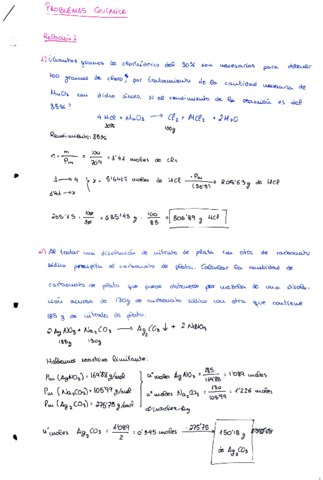 PROBLEMAS QUÍMICA
Relación 1
1) ¿Cuántos gramos de clorhídrico del 30% son necesarios para obtener
100 gramos de cloro, por tratamiento de la cantidad necesaria de
MnO₂ con dicho ácido, si el rendimiento de la reacción es del
85%?
4 HCl + MnO₂ → Cl₂ + MCl₂ + 2H₂O
30% 100g
Rendimiento: 85%
n = m/Pm = 100/70'9 = 1'41 moles de Cl₂
1 → 4
1'41 → x
x = 5'6417 moles de HCl · Pm (36'5) → 205'63 g de HCl
· 100/30 = 685'43 g · 100/85 = 806'39 g HCl
2) Al tratar una disolución de nitrato de plata con otra de carbonato
sódico precipita el carbonato de plata. Calcular la cantidad de
carbonato de plata que puede obtenerse por mezcla de una disolu-
ción acuosa de 130g de carbonato sódico con otra que contiene
185 g de nitrato de plata.
2 AgNO₃ + Na₂CO₃ → Ag₂CO₃ ↓ + 2 NaNO₃
185g 130g
Hallamos reactivo limitante:
Pm (AgNO₃) = 169'88 g/mol
Pm (Na₂CO₃) = 105'99 g/mol
Pm (Ag₂CO₃) = 275'75 g/mol
nº moles AgNO₃ = 185/169'88 = 1'089 moles
nº moles Na₂CO₃ = 130/105'99 = 1'226 moles
nº moles Ag₂CO₃ = 1'089/2 = 0'545 moles · 275'75 → 150'15 g
de Ag₂CO₃